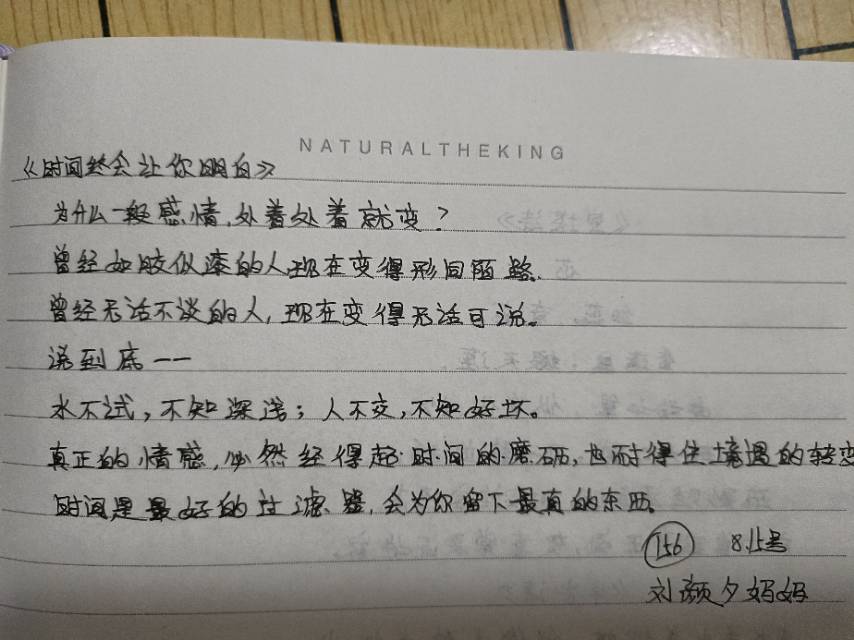 NATURALTHEKING
《时间终会让你明白》
为什么一段感情,处着处着就变?
曾经如胶似漆的人,现在变得形同陌路.
曾经无话不谈的人,现在变得无话可说。
说到底——
水不试,不知深浅;人不交,不知好坏。
真正的情感,必然经得起时间的磨砺,也耐得住境遇的转变
时间是最好的过滤器,会为你留下最真的东西。
156 8.15号
刘颜夕妈妈